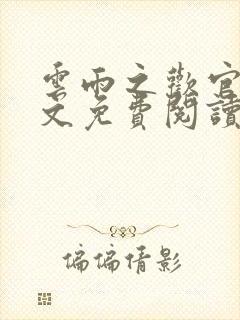 雲雨之歡官
文免費閱讀
偏偏倩影